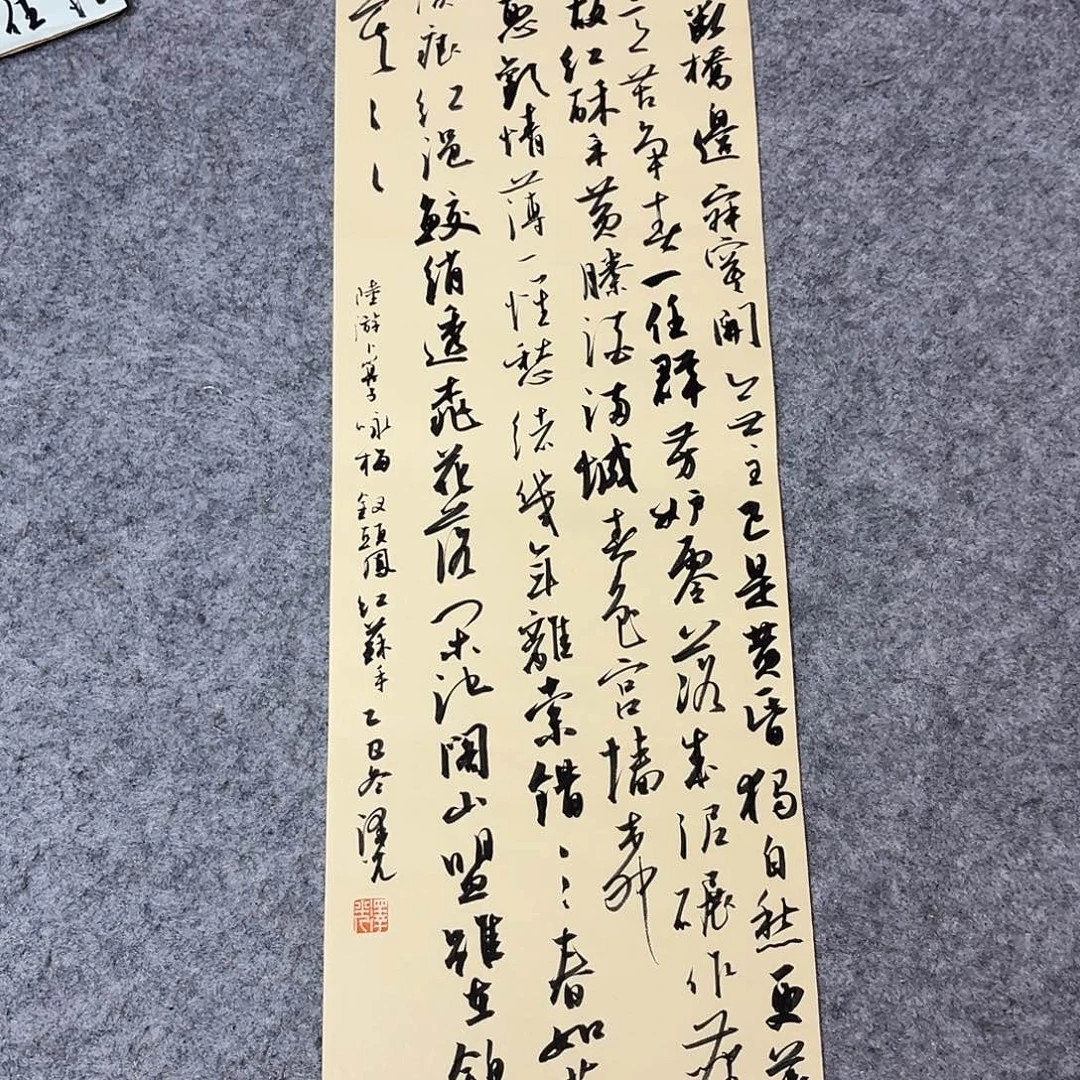 斷橋邊寂寞開無主已是黃昏獨自愁更著
意苦争春一任群芳妒零落成泥碾作
故紅酥手黄縢酒满城春色宫墙柳
惡歡情薄一懷愁緒幾年離索錯〻〻春如舊
淚痕紅浥鮫綃透桃花落闲池閣山盟雖在錦
莫〻〻
陸游卜算子咏梅 釵頭鳳紅蘇手 乙巳冬澤光
澤光